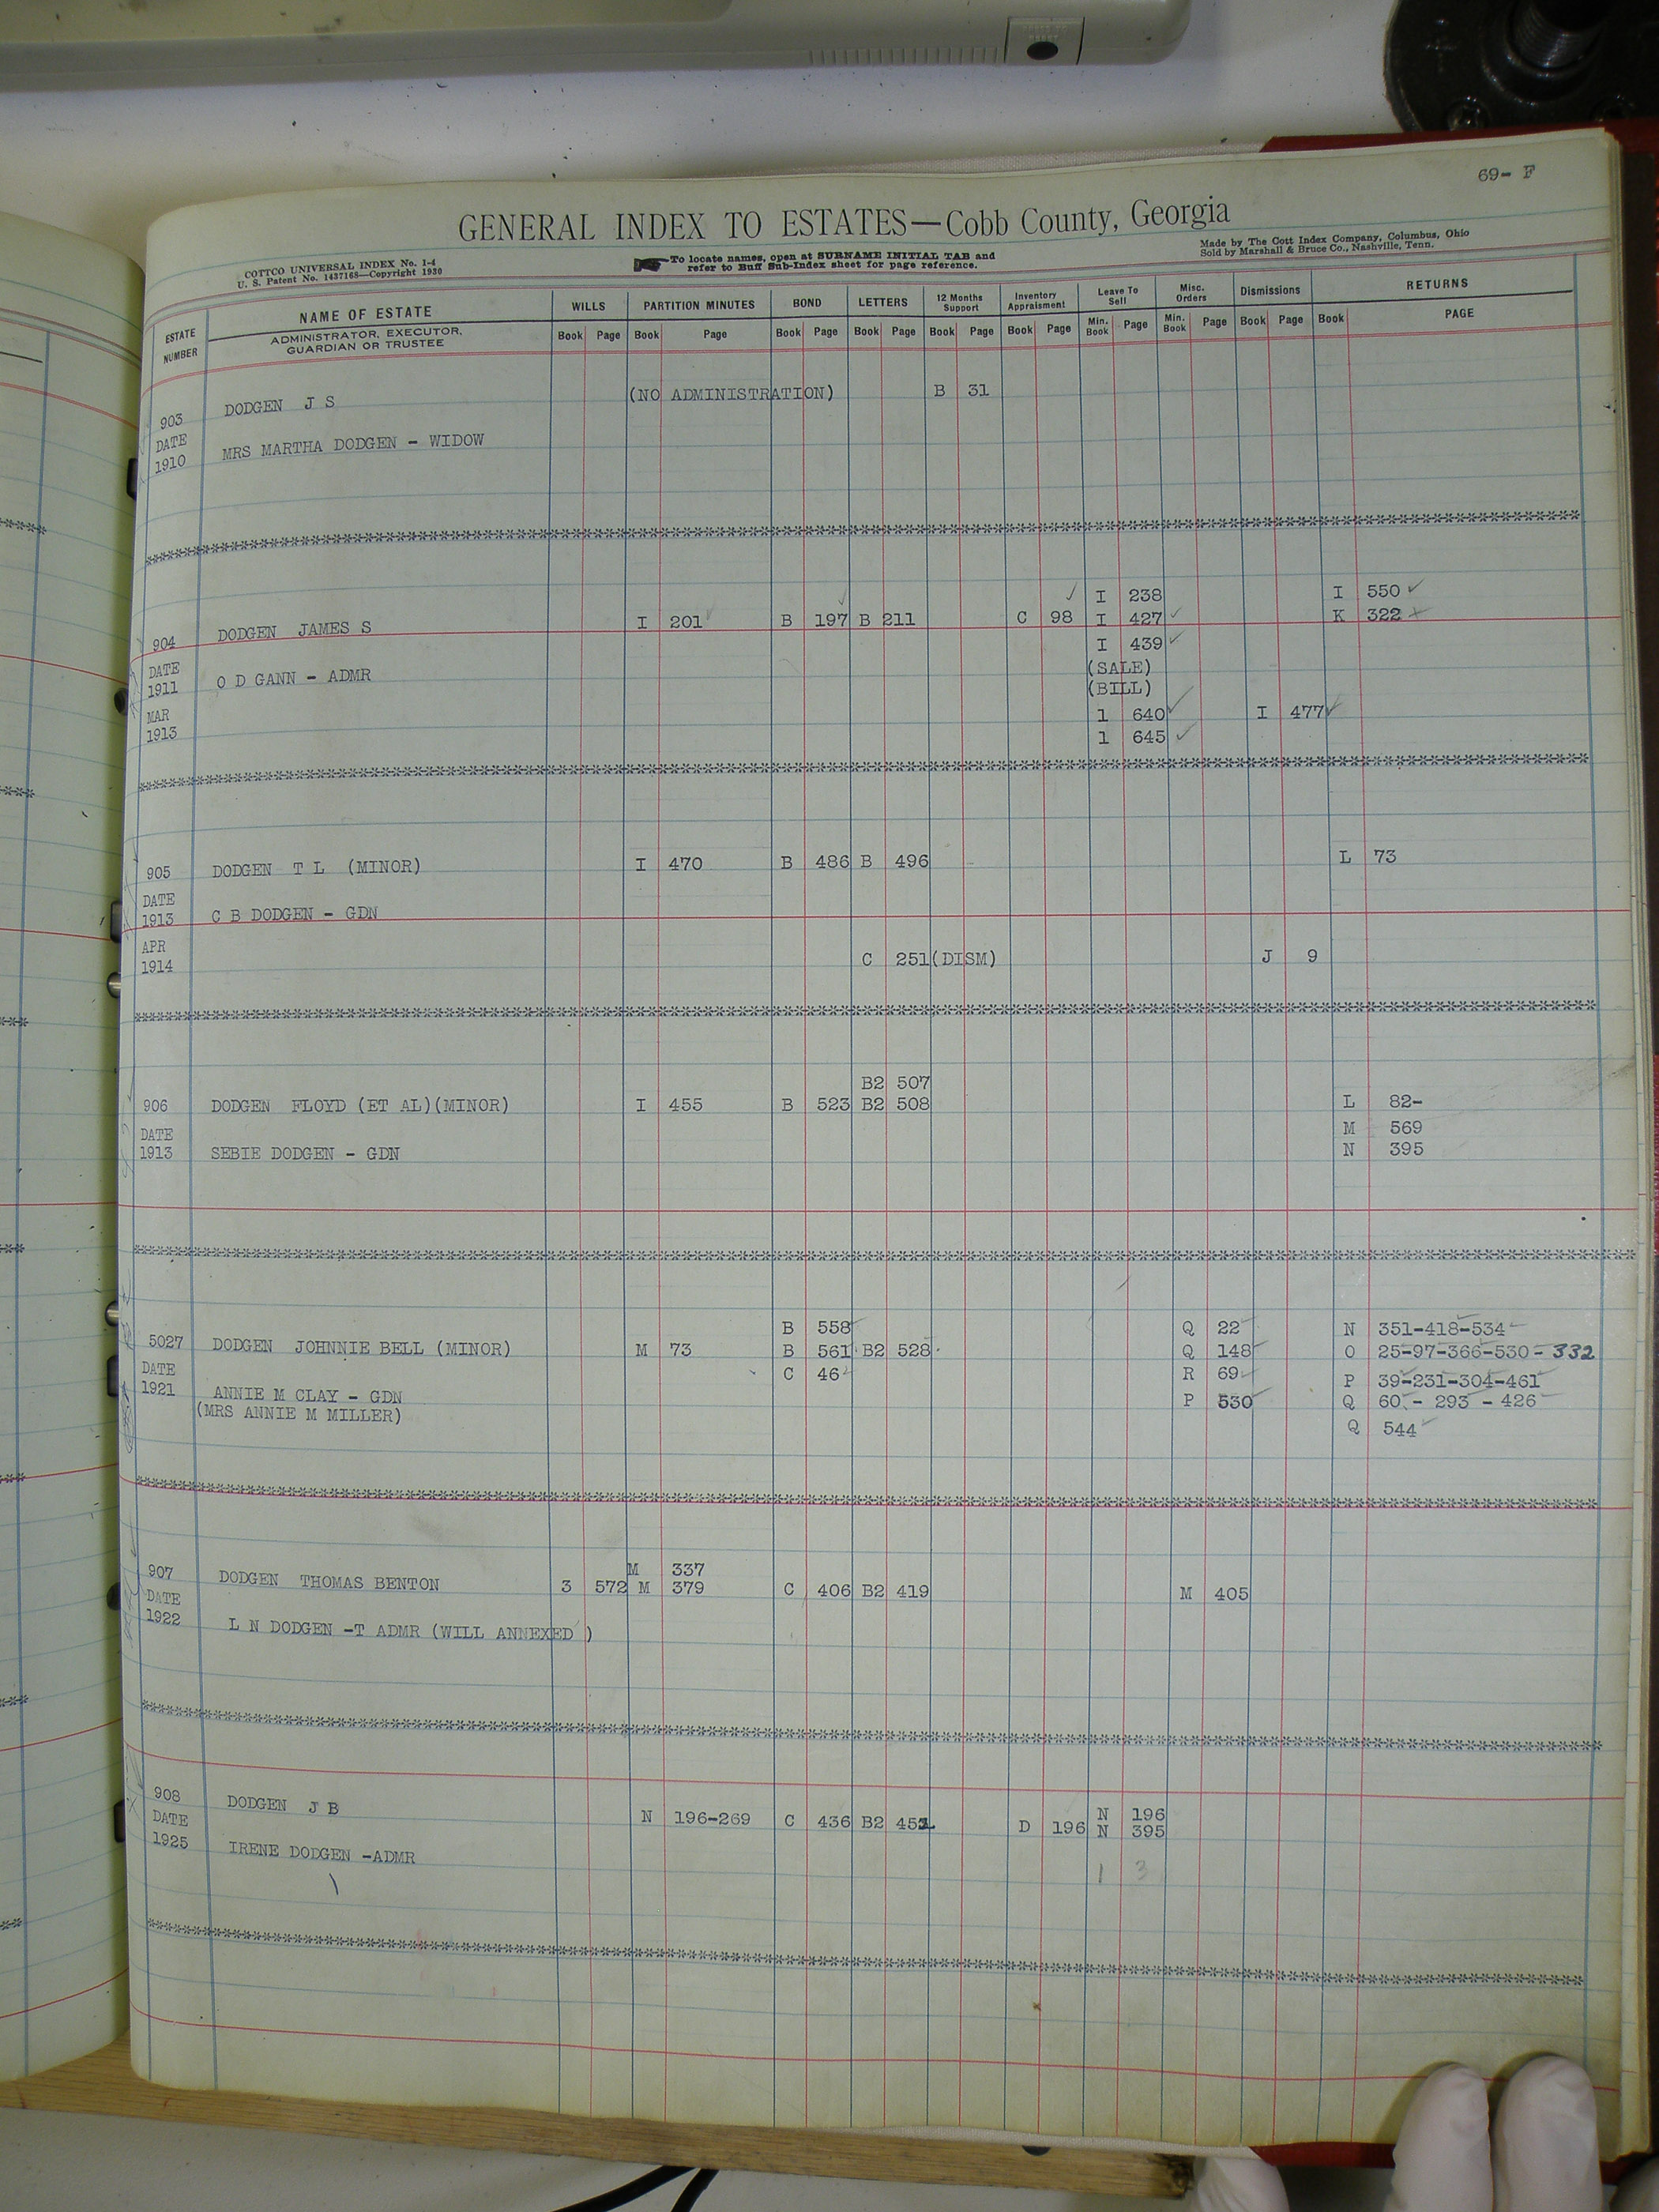 69- F
GENERAL INDEX TO ESTATES—Cobb County, Georgia
COTTCO UNIVERSAL INDEX No. 1-4
U. S. Patent No. 1437168—Copyright 1930
To locate names, open at SURNAME INITIAL TAB and
refer to Buff Sub-Index sheet for page reference.
Made by The Cott Index Company, Columbus, Ohio
Sold by Marshall & Bruce Co., Nashville, Tenn.
ESTATE NUMBER
NAME OF ESTATE
ADMINISTRATOR, EXECUTOR,
GUARDIAN OR TRUSTEE
WILLS PARTITION MINUTES BOND LETTERS 12 Months Support Inventory Appraisment Leave To Sell Misc. Orders Dismissions RETURNS
Book Page Book Page Book Page Book Page Book Page Book Page Min. Book Page Min. Book Page Book Page Book PAGE
903 DODGEN J S (NO ADMINISTRATION) B 31
DATE
1910 MRS MARTHA DODGEN - WIDOW
I 238 I 550
904 DODGEN JAMES S I 201 B 197 B 211 C 98 I 427 K 322
I 439
DATE (SALE)
1911 O D GANN - ADMR (BILL)
MAR 1 640 I 477
1913 1 645
905 DODGEN T L (MINOR) I 470 B 486 B 496 L 73
DATE
1913 C B DODGEN - GDN
APR
1914 C 251 (DISM) J 9
B2 507
906 DODGEN FLOYD (ET AL)(MINOR) I 455 B 523 B2 508 L 82-
DATE M 569
1913 SEBIE DODGEN - GDN N 395
B 558 Q 22 N 351-418-534
5027 DODGEN JOHNNIE BELL (MINOR) M 73 B 561 B2 528 Q 148 O 25-97-366-530-332
DATE C 46 R 69 P 39-231-304-461
1921 ANNIE M CLAY - GDN P 530 Q 60 - 293 - 426
(MRS ANNIE M MILLER) Q 544
M 337
907 DODGEN THOMAS BENTON 3 572 M 379 C 406 B2 419 M 405
DATE
1922 L N DODGEN -T ADMR (WILL ANNEXED )
908 DODGEN J B N 196-269 C 436 B2 D 196 N 196
DATE N 395
1925 IRENE DODGEN -ADMR
1 3